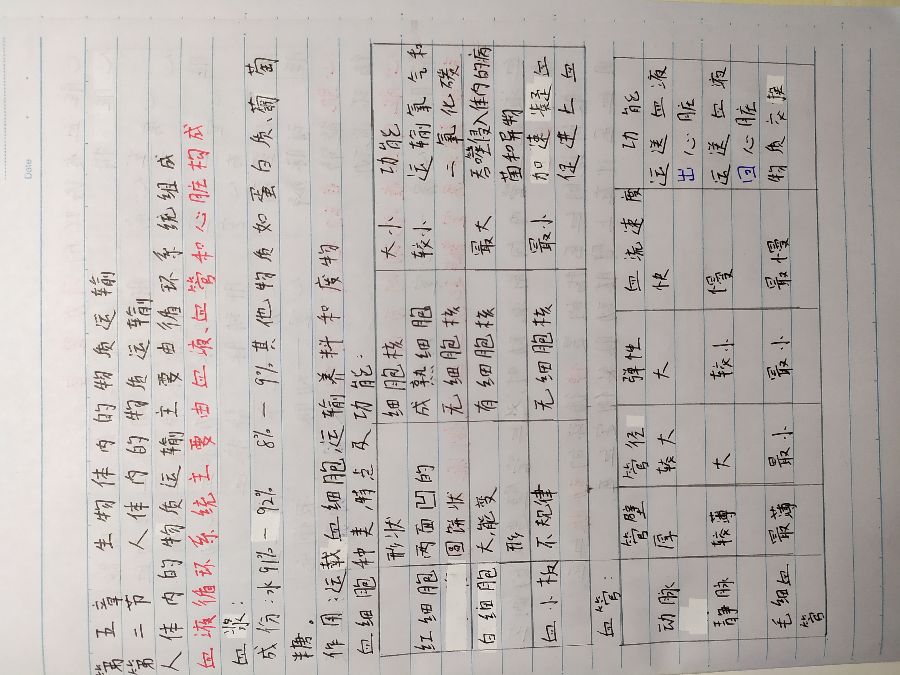 Date
第五章 生物体内的物质运输
第二节 人体内的物质运输
人体内的物质运输主要由循环系统组成
血液循环系统主要由血液、血管和心脏构成
血浆：
成份：水91%－92% 8%－9%其他物质如蛋白质、葡萄
糖。
作用：运载血细胞，运输养料和废物
血细胞种类，特点及功能：
形状 细胞核 大小 功能
红细胞 两面凹的 成熟细胞 较小 运输氧气和
圆饼状 无细胞核 二氧化碳
白细胞 大，能变 有细胞核 最大 吞噬侵入体内的病
形 菌和异物
血小板 不规律 无细胞核 最小 加速凝血
促进止血
血管：
管壁 管径 弹性 血流速度 功能
动脉 厚 较大 大 快 运送血液
出心脏
静脉 较薄 大 较小 慢 运送血液
回心脏
毛细血 最薄 最小 最小 最慢 物质交换
管